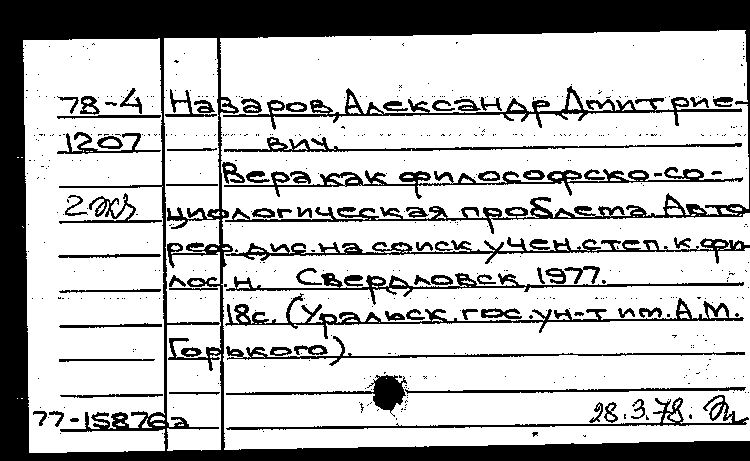 78-4 Назаров, Александр Дмитрие-
1207 вич.
Вера как философско-со-
2 экз циологическая проблема. Авто
реф. дис. на соиск. учен. степ. к. фи
лос. н. Свердловск, 1977.
18с. (Уральск. гос. ун-т им. А.М.
Горького).
77-15876а 28.3.78.